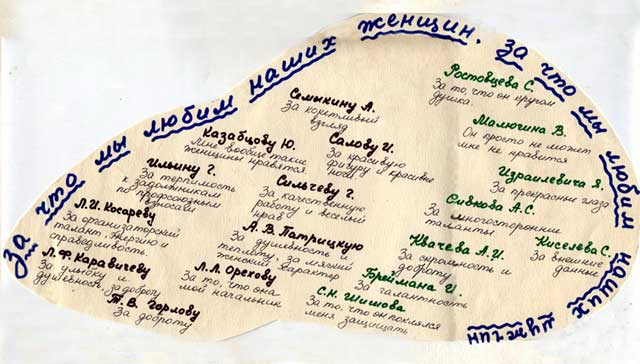 За что мы любим наших женщин. За что мы любим наших мужчин
Семыкину А.
За кокетливый
взгляд
Казабцову Ю.
Мне вообще такие
женщины нравятся.
Салову И.
За красивую
фигуру и красивые
ноги
Ильину Г.
За терпимость
к задолжникам
по профсоюзным
взносам
Сильчеву Г.
За качественную
работу и веселый
нрав
Л.И. Косареву
За организаторский
талант, энергию и
справедливость.
А.В. Патрицкую
За душевность и
теплоту, за мягкий
женский характер
Л.Ф. Каравичеву
За улыбку и
душевность, за доброту
Л.Л. Орехову
За то, что она
мой начальник
Т.В. Горлову
За доброту
Ростовцева С.
За то, что он кругом
душка.
Малюгина В.
Он просто не может
мне не нравится
Израилевича Я.
За прекрасные глаза
Сивкова А.С.
За многосторонние
таланты
Квачева А.И.
За скромность и
доброту
Киселева С.
За внешние
данные
Бреймана И.
За галантность
С.Н. Шишова
За то, что он поклялся
меня защищать